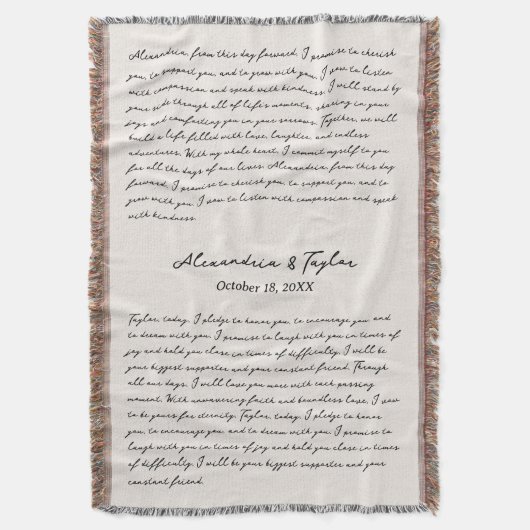 Alexandria, from this day forward, I promise to cherish
you, to support you, and to grow with you. I vow to listen
with compassion and speak with kindness. I will stand by
your side through all of life's moments, sharing in your
days and comforting you in your sorrows. Together, we will
build a life filled with love, laughter, and endless
adventures. With my whole heart, I commit myself to you
for all the days of our lives. Alexandria, from this day
forward, I promise to cherish you, to support you, and to
grow with you. I vow to listen with compassion and speak
with kindness.
Alexandria & Taylor
October 18, 20XX
Taylor, today, I pledge to honor you, to encourage you, and
to dream with you. I promise to laugh with you in times of
joy and hold you close in times of difficulty. I will be
your biggest supporter and your constant friend. Through
all our days, I will love you more with each passing
moment. With unwavering faith and boundless love, I vow
to be yours for eternity. Taylor, today, I pledge to honor
you, to encourage you, and to dream with you. I promise to
laugh with you in times of joy and hold you close in times
of difficulty. I will be your biggest supporter and your
constant friend.